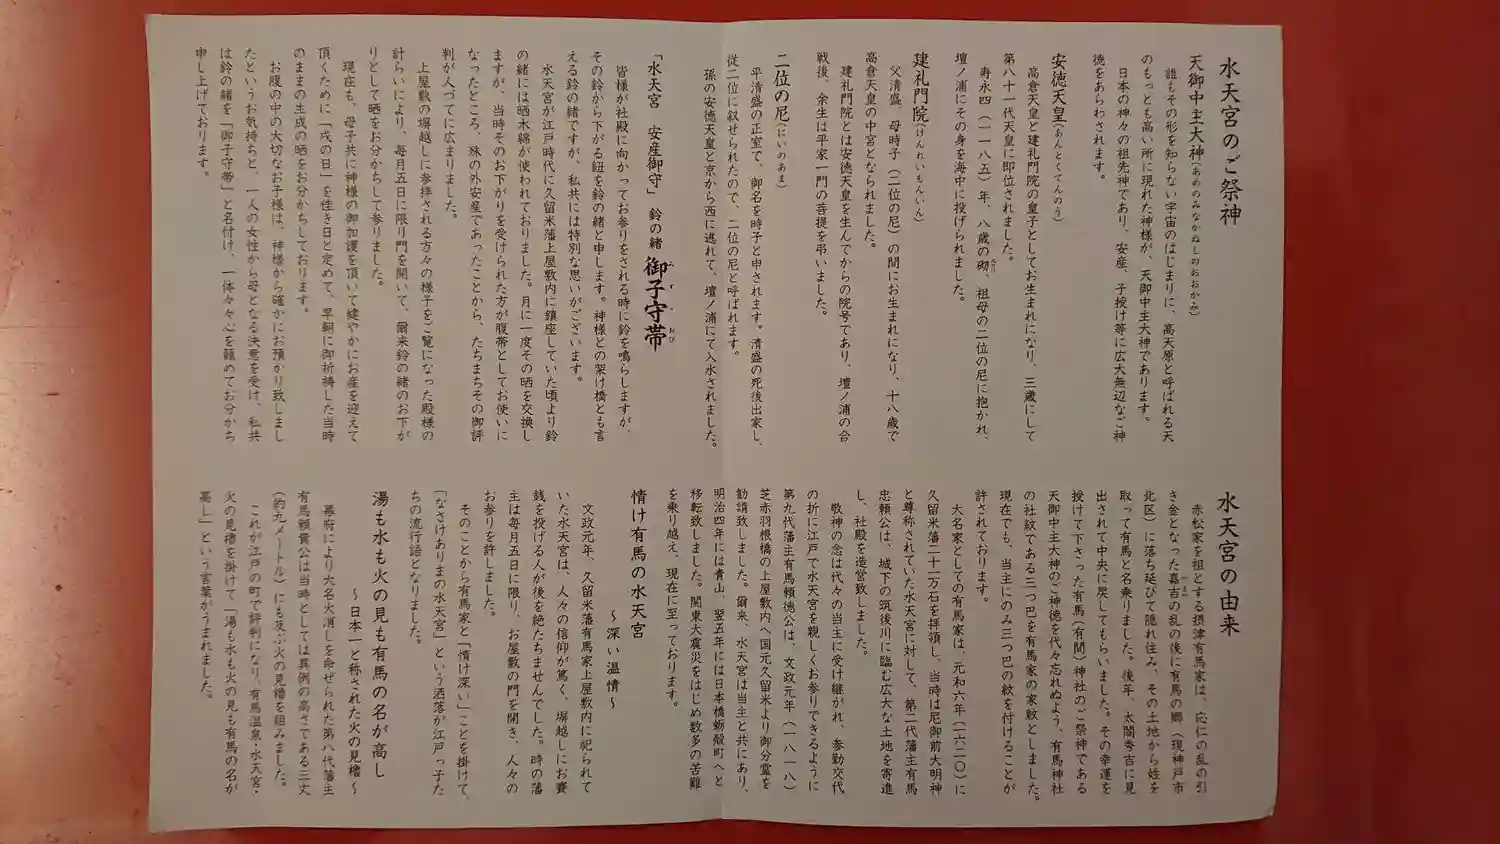 水天宮のご祭神
天御中主大神(あめのみなかぬしのおおかみ)
誰もその形を知らない宇宙のはじまりに、高天原と呼ばれる天
のもっとも高い所に現れた神様が、天御中主大神であります。
日本の神々の祖先神であり、安産、子授け等に広大無辺なご神
徳をあらわされます。
安徳天皇(あんとくてんのう)
高倉天皇と建礼門院の皇子としてお生まれになり、三歳にして
第八十一代天皇に即位されました。
寿永四(一一八五)年、八歳の砌、祖母の二位の尼に抱かれ、
壇ノ浦にその身を海中に投げられました。
建礼門院(けんれいもんいん)
父清盛、母時子(二位の尼)の間にお生まれになり、十八歳で
高倉天皇の中宮となられました。
建礼門院とは安徳天皇を生んでからの院号であり、壇ノ浦の合
戦後、余生は平家一門の菩提を弔いました。
二位の尼(にいのあま)
平清盛の正室で、御名を時子と申されます。清盛の死後出家し、
従二位に叙せられたので、二位の尼と呼ばれます。
孫の安徳天皇と京から西に逃れて、壇ノ浦にて入水されました。
「水天宮 安産御守」 鈴の緒 御子守帯
皆様が社殿に向かってお参りをされる時に鈴を鳴らしますが、
その鈴から下がる紐を鈴の緒と申します。神様との架け橋とも言
える鈴の緒ですが、私共には特別な思いがございます。
水天宮が江戸時代に久留米藩上屋敷内に鎮座していた頃より鈴
の緒には晒木綿が使われておりました。月に一度その晒を交換し
ますが、当時そのお下がりを受けられた方が腹帯としてお使いに
なったところ、殊の外安産であったことから、たちまちその御評
判が人づてに広まりました。
上屋敷の塀越しに参拝される方々の様子をご覧になった殿様の
計らいにより、毎月五日に限り門を開いて、爾来鈴の緒のお下が
りとして晒をお分かちして参りました。
現在も、母子共に神様の御加護を頂いて健やかにお産を迎えて
頂くために「戌の日」を佳き日と定めて、早朝に御祈祷した当時
のままの生成の晒をお分かちしております。
お腹の中の大切なお子様は、神様から確かにお預かり致しまし
たというお気持ちと、一人の女性から母となる決意を受け、私共
は鈴の緒を「御子守帯」と名付け、一体々々心を籠めてお分かち
申し上げております。
水天宮の由来
赤松家を祖とする摂津有馬家は、応仁の乱の引
き金となった嘉吉の乱の後に有馬の郷(現神戸市
北区)に落ち延びて隠れ住み、その土地から姓を
取って有馬と名乗りました。後年、太閤秀吉に見
出されて中央に戻してもらいました。その幸運を
授けて下さった有馬(有間)神社のご祭神である
天御中主大神のご神徳を代々忘れぬよう、有馬神社
の社紋である三つ巴を有馬家の家紋としました。
現在でも、当主にのみ三つ巴の紋を付けることが
許されております。
大名家としての有馬家は、元和六年(一六二〇)に
久留米藩二十一万石を拝領し、当時は尼御前大明神
と尊称されていた水天宮に対して、第二代藩主有馬
忠頼公は、城下の筑後川に臨む広大な土地を寄進
し、社殿を造営致しました。
敬神の念は代々の当主に受け継がれ、参勤交代
の折に江戸で水天宮を親しくお参りできるように
第九代藩主有馬頼徳公は、文政元年(一八一八)
芝赤羽根橋の上屋敷内へ国元久留米より御分霊を
勧請致しました。爾来、水天宮は当主と共にあり、
明治四年には青山、翌五年には日本橋蛎殻町へと
移転致しました。関東大震災をはじめ数多の苦難
を乗り越え、現在に至っております。
情け有馬の水天宮
～深い温情～
文政元年、久留米藩有馬家上屋敷内に祀られて
いた水天宮は、人々の信仰が篤く、塀越しにお賽
銭を投げる人が後を絶たちませんでした。時の藩
主は毎月五日に限り、お屋敷の門を開き、人々の
お参りを許しました。
そのことから有馬家と「情け深い」ことを掛けて、
「なさけありまの水天宮」という洒落が江戸っ子た
ちの流行語となりました。
湯も水も火の見も有馬の名が高し
～日本一と称された火の見櫓～
幕府により大名火消しを命ぜられた第八代藩主
有馬頼貴公は当時としては異例の高さである三丈
(約九メートル)にも及ぶ火の見櫓を組みました。
これが江戸の町で評判になり、有馬温泉・水天宮・
火の見櫓を掛けて「湯も水も火の見も有馬の名が
高し」という言葉がうまれました。